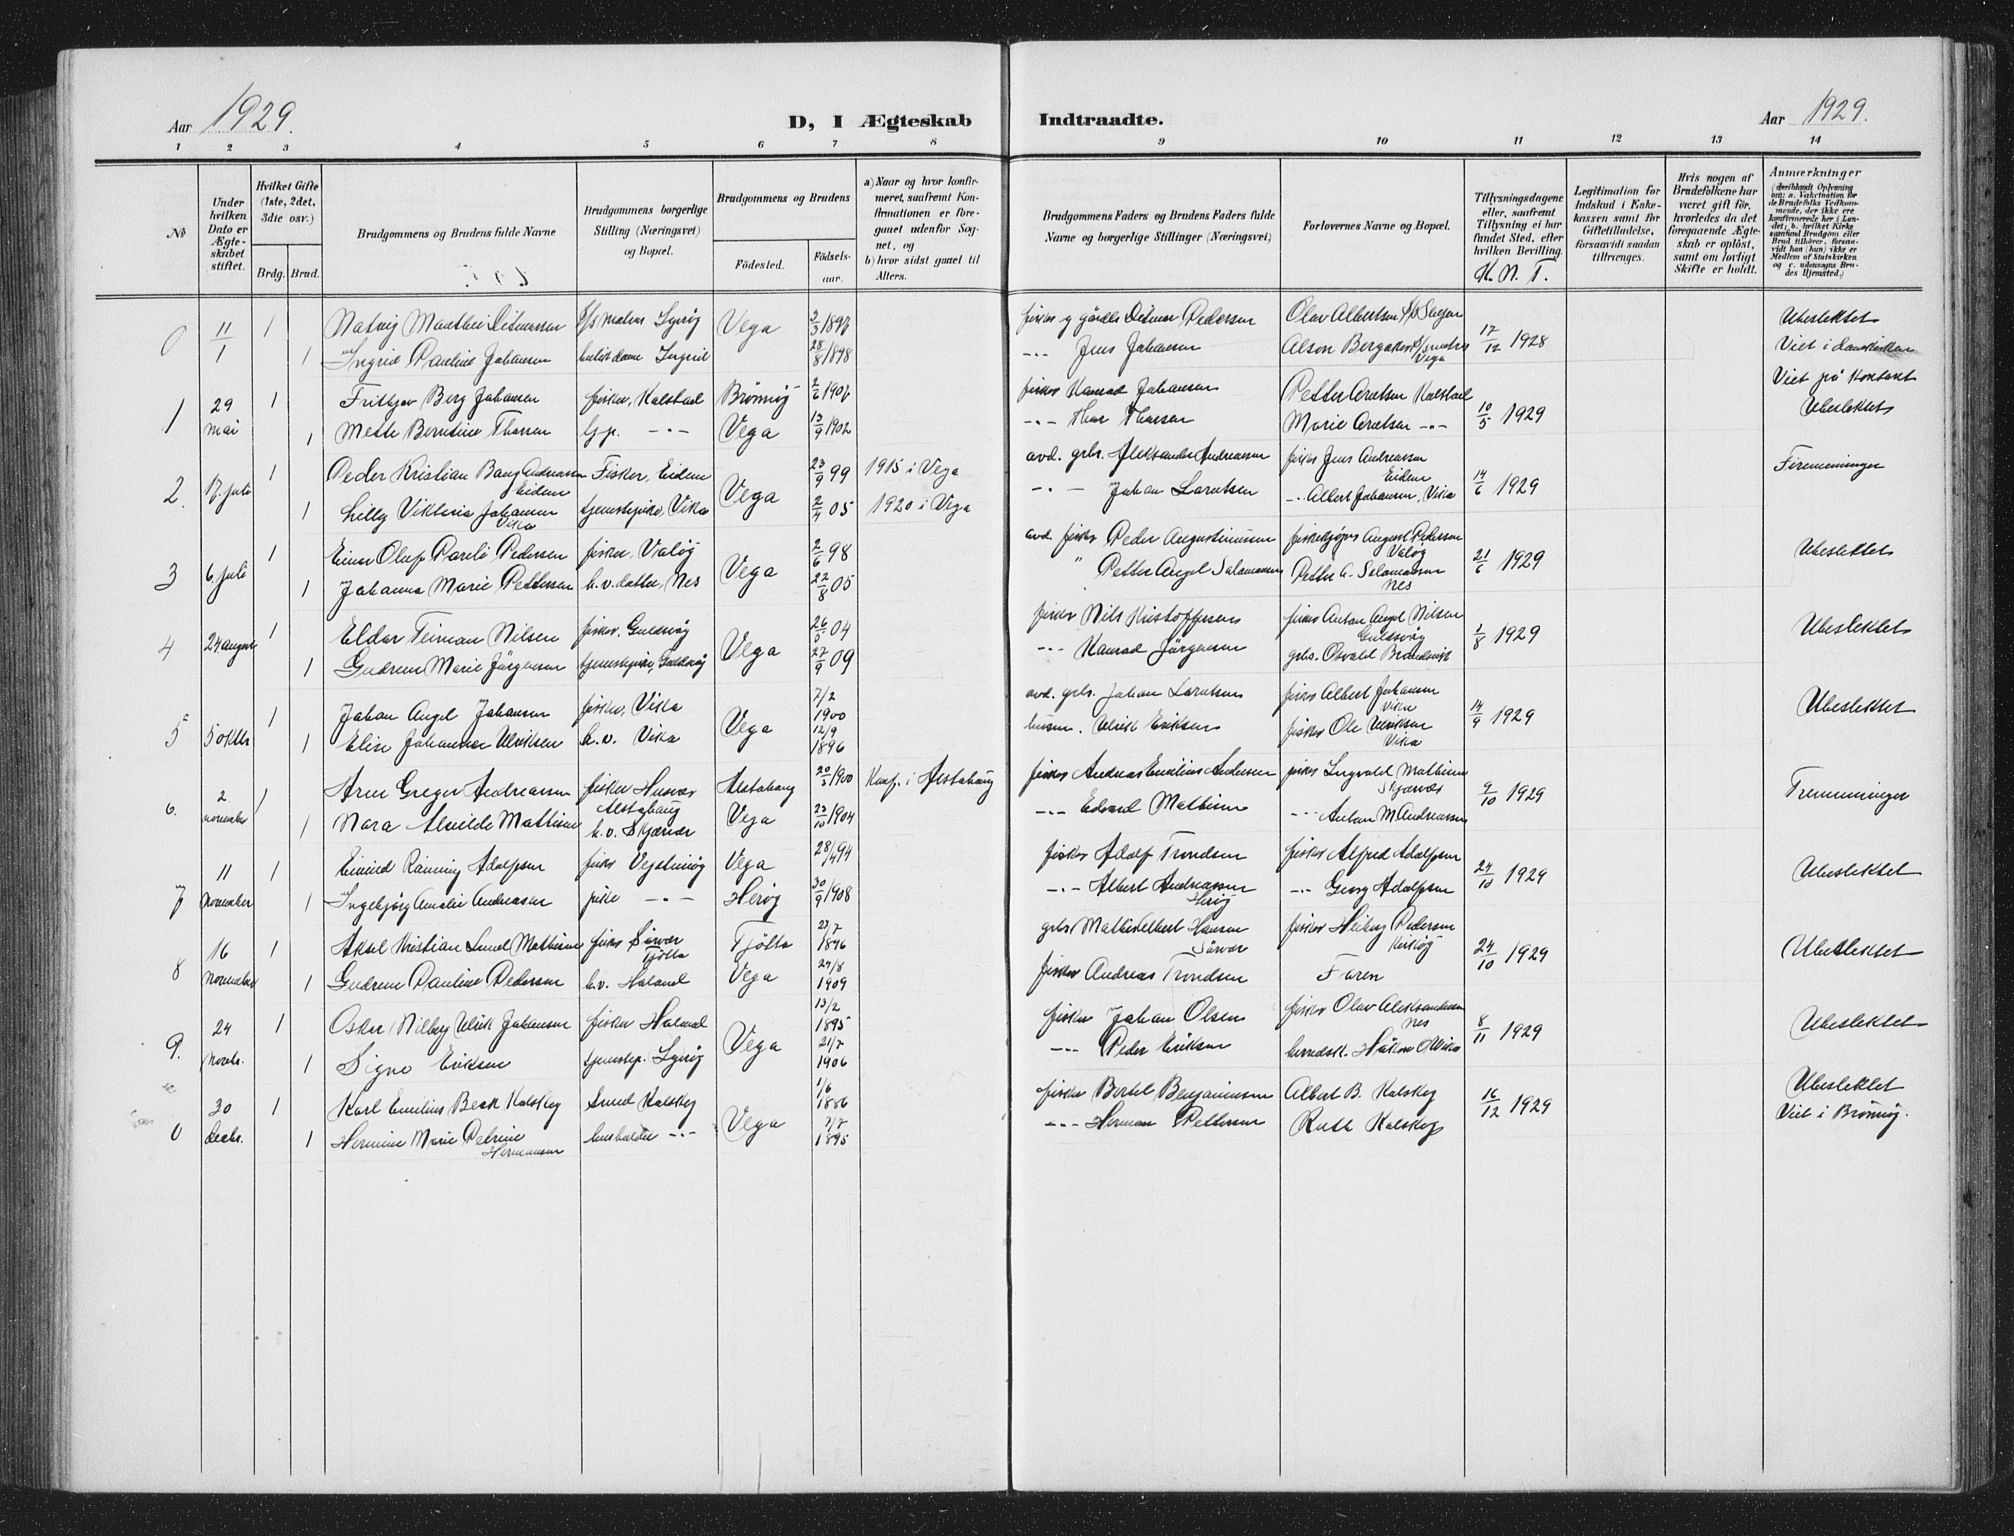 Aar 1929.
D, I Ægteskab Indtraadte.
Aar 1929.
1 2 3 4 5 6 7 8 9 10 11 12 13 14
No
Under hvilken Dato er Ægteskabet stiftet.
Hvilket Gifte (1ste, 2det, 3die osv.)
Brdg. Brud.
Brudgommens og Brudens fulde Navne
Brudgommens borgerlige Stilling (Næringsvei) og Bopæl.
Brudgommens og Brudens
Fødested. Fødselsaar.
a) Naar og hvor konfirmeret, saafremt Konfirmationen er foregaaet udenfor Sognet, og
b) hvor sidst gaaet til Alters.
Brudgommens Faders og Brudens Faders fulde Navne og borgerlige Stillinger (Næringsvei)
Forlovernes Navne og Bopæl.
Tillysningsdagene eller, saafremt Tillysning ei har fundet Sted, efter hvilken Bevilling.
K. N. T.
Legitimation for Indskud i Enkekassen samt for Giftetilladelse, forsaavidt saadan tiltrænges.
Hvis nogen af Brudefolkene har været gift før, hvorledes da det foregaaende Ægteskab er opløst, samt om lovligt Skifte er holdt.
Anmærkninger
(deriblandt Oplysning om: a. Vakcination for de Brudefolks Vedkommende, der ikke ere konfirmerede her i Landet; b. hvilket Kirkesamfund Brudgom eller Brud tilhører, forsaavidt han (hun) ikke er Medlem af Statskirken og c. udensogns Brudes Hjemsted.)
0 11/1 1 Vega 2/3 1897 fisker g gårdbr Ditmar Pedersen Olav Albertsen 17/12 1928 Ubeslektet
1 Ingrid Pauline Johansen 28/8 1898 -"- Jens Johansen Vega Viet i
1 29 mai 1 Fritjov Berg Johansen fisker, Kalstad Brønnøy 2/6 1906 fisker Konrad Johansen Petter Arntsen Kalstad 10/5 1929 Viet på kontoret
1 Mette Berntine Thorsen Gp. -"- Vega 13/9 1902 -"- Thor Thorsen Marie Arntsen -"- Ubeslektet
2. 17. juli 1 Peder Kristian Bang Andreassen Eidem Fisker, Eidem Vega 23/9 99 1915 i Vega avd. grbr. Aleksander Andreassen fisker Jens Andreassen Eidem 14/6 1929 Firmenninger
1 Lilly Viktoria Johansen Vika tjenestepike, Vika 2/4 05 1920 i Vega -"- Johan Larntsen -"- Albert Johansen, Vika
3 6. juli 1 Einar Oluf Pareli Pedersen fisker, Valøy Vega 2/6 98 avd. fisker Peder Augustinussen August Pedersen Valøy 21/6 1929 Ubeslektet
1 Johanna Marie Pettersen h.v. datter, Nes 22/8 05 " Petter Angel Salamonsen Petter A. Salamonsen Nes
4 24 august 1 Eldar Teiman Nilsen fisker, Guldsvåg Vega 04 fisker Nils Kristoffersen fisker Anton Angel Nilsen Guldsvåg 1/8 1929 Ubeslektet
1 Gudrun Marie Jørgensen tjenestepike, Guldsvåg 27/9 09 -"- Konrad Jørgensen grbr. Osvald
5 5 oktbr 1 Johan Angel Johansen fisker, Vika Vega 7/2 1900 avd. grbr. Johan Larntsen fisker Albert Johansen Vika 14/9 1929 Ubeslektet
1 Elise Johannes Ulriksen h.v. Vika 12/9 1896 husm. Ulrik Eriksen fisker Ole Ulriksen Vika
6. 2 november 1 Arne Greger Andreassen fisker Husvær Alstahaug Alstahaug 20/5 1900 Konf. i Alstahaug fisker Andreas Emilius Andersen fisker Ingvald Mathisen Skjærvær 9/10 1929 Tremenninger
1 Nora Alvilde Mathisen h.v. Skjærvær Vega 23/10 1904 -"- Edvard Mathisen -"- Anton M Andreassen
7 11 november 1 Eivind Rønning Adolfsen fisker Vega 28/4 94 fisker Adolf Trondsen fisker Alfred Adolfsen 24/10 1929 Ubeslektet
1 Ingebjørg Amalie Andreassen pike -"- Herøy 30/9 1908 -"- Albert Andreassen Herøy -"- Georg Adolfsen
8 16 november 1 Aksel Kristian Lund Mathisen fisker Sørvær Tjøtta Tjøtta 27/7 1896 grbr Mathis Albert Hansen Sørvær fisker Heiberg Pedersen Kirkøy 24/10 1929 Ubeslektet
1 Gudrun Pauline Pedersen h.v. Holand Vega 24/8 1909 fisker Andreas Trondsen Faren
9. 24 novbr. 1 Oskar Nilberg Ulrik Johansen fisker Holand Vega 13/2 1895 fisker Johan Olsen fisker Olav Aleksandersen Nes 8/11 1929 Ubeslektet
1 Signe Eriksen tjenestep. 21/7 1906 -"- Peder Eriksen herredsk. Håkon
0 30 decbr. 1 Karl Emilius Beck Kalskeg Smed Kalskeg Vega 1/6 1886 fisker Bertel Benjaminsen Albert B. Kalskeg 16/12 1929 Ubeslektet
1 Hermine Marie Petrine Hermansen husholder -"- 7/7 1895 -"- Herman Pettersen Ruth Kalskeg Viet i Brønnøy.